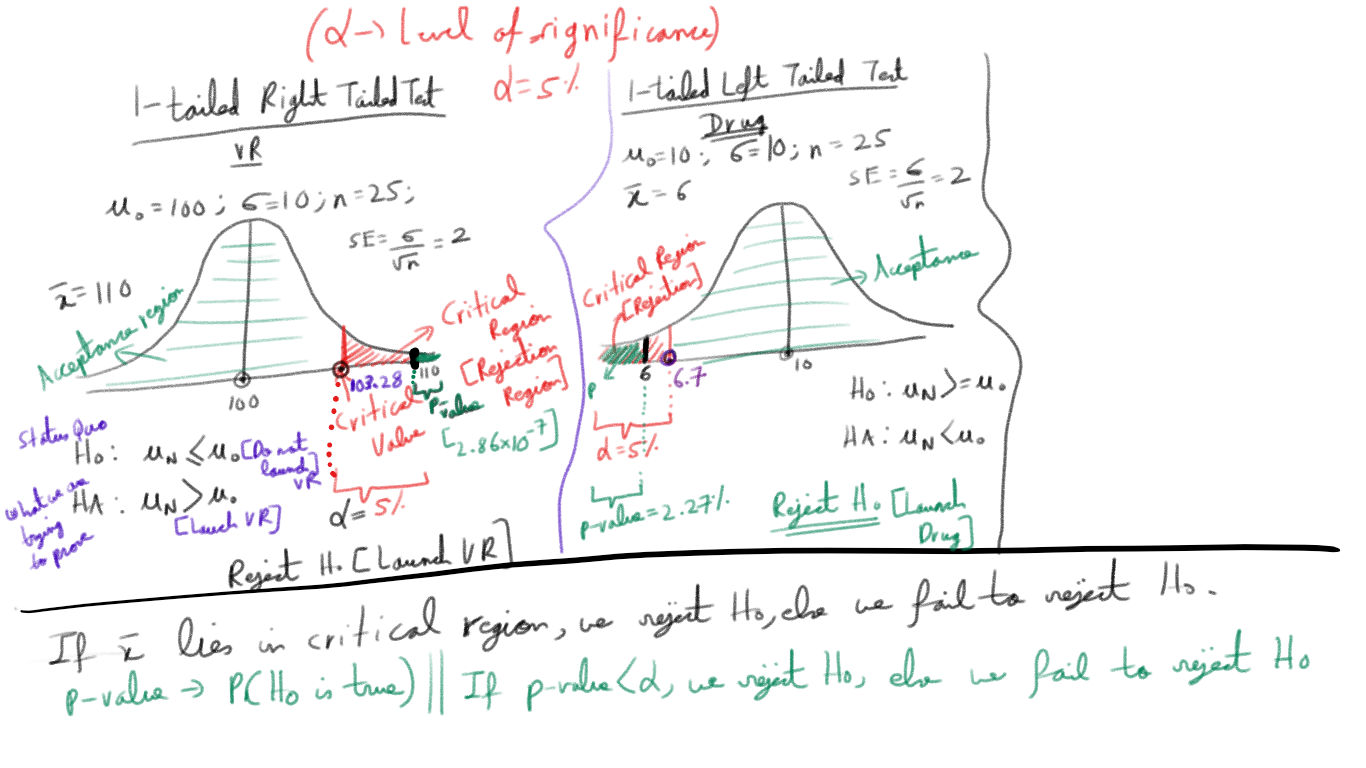 (α → level of significance)
α = 5%
1-tailed Right Tailed Test
VR
μ₀ = 100 ; σ = 10 ; n = 25;
SE = σ/√n = 2
x̄ = 110
Acceptance region
Critical
Region
[Rejection
Region]
100
103.28
110
Critical
Value
p-value
[2.86×10⁻⁷]
Status Quo
H₀ : μN ≤ μ₀ [Do not
launch]
VR
what we are
trying
to prove
HA : μN > μ₀
[Lauch VR]
α = 5%
Reject H₀ [Launch VR]
1-tailed Left Tailed Test
Drug
μ₀ = 10 ; σ = 10 ; n = 25
x̄ = 6
SE = σ/√n = 2
Critical Region
[Rejection]
Acceptance
P
6
6.7
10
α = 5%
p-value = 2.27%
H₀ : μN >= μ₀
HA : μN < μ₀
Reject H₀ [Launch
Drug]
If x̄ lies in critical region, we reject H₀, else we fail to reject H₀.
p-value → P(H₀ is true) || If p-value < α, we reject H₀, else we fail to reject H₀